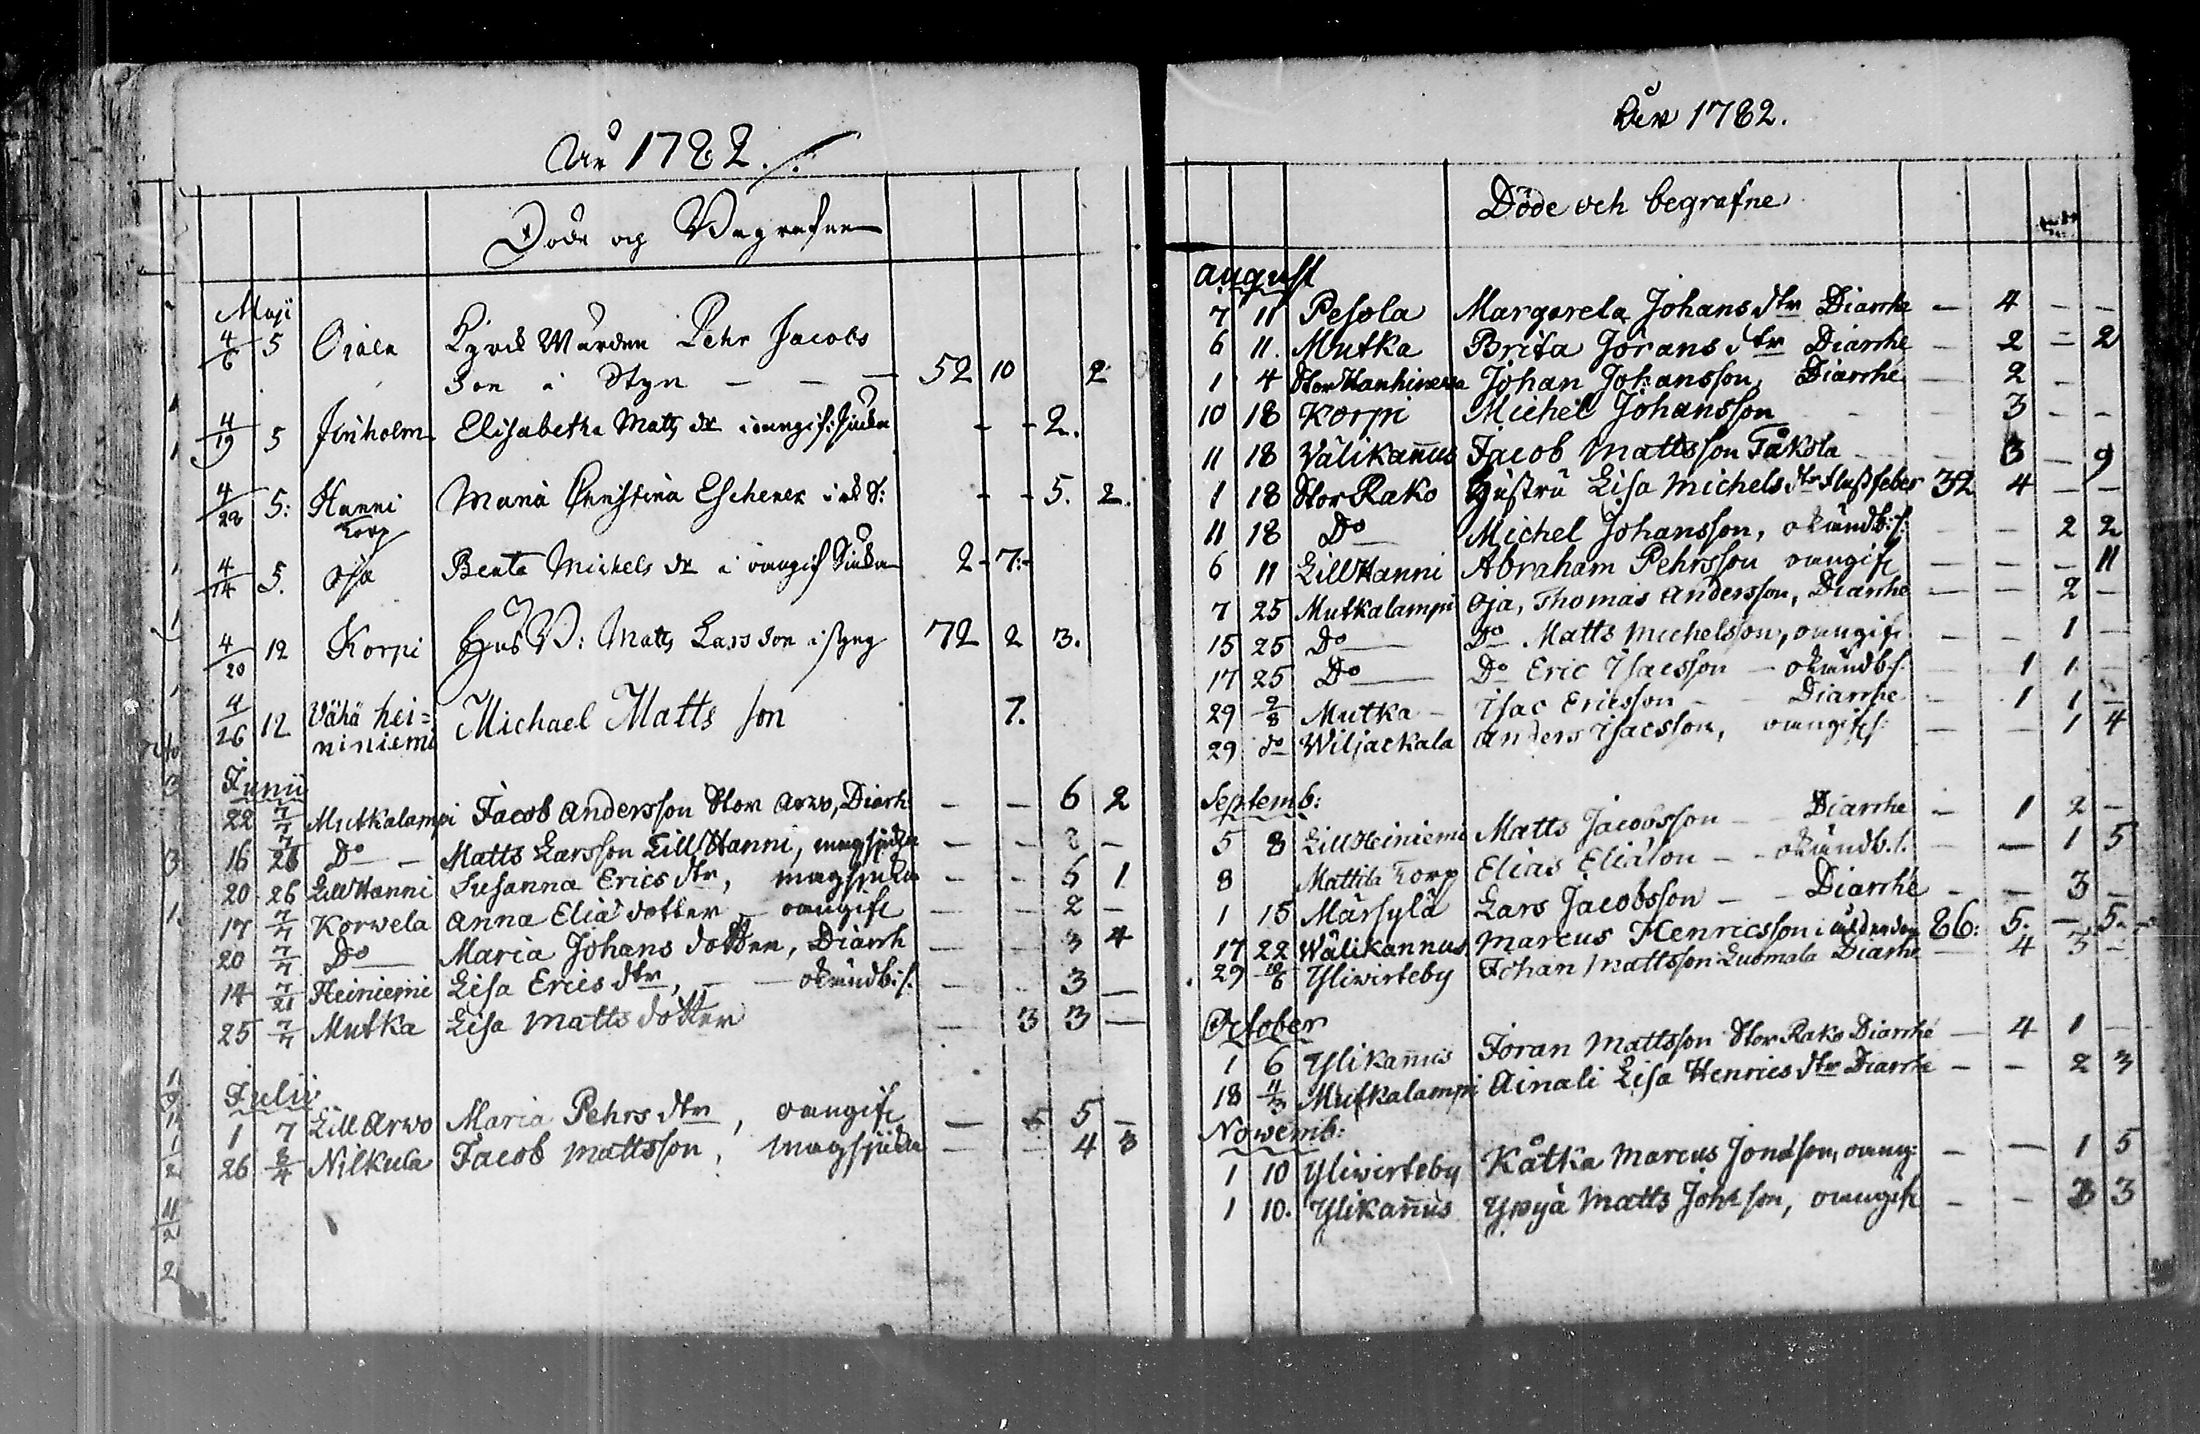 År 1782.
Döde och Begrafne
Maji
4/6 5 Ojala Kyrck Wärden Pehr Jacobs
Son i Styn - - - 52 10 2
4/19 5 Jünholm Elisabetha Matts dr - - 2.
4/28 5: Hanni Maria Christina Eschener - - 5. 2.
Torp
4/14 5. Oja Beata Michels dr i 2 - 7 -
4/20 12 Korpi Matts Larsson i styng 72 2 3.
4/26 12 Vähä hei= Michael Matts son 7.
niniemi
Junii
22 7/7 Mutkalampi Jacob Andersson Stor Arwo, Diarh: - - 6 2
16 7/28 Do - Matts Larsson Lill Hanni, magsjuka - - 2 -
20 26 Lill Hanni Susanna Erics dtr, magsjuka - - 5 1
17 7/7 Korwela Anna Eliä dotter - oangifl - - 2 -
20 7/7 Do Maria Johans dotter, Diarrh - - 3 4
14 7/21 Heiniemi Lisa Erics dtr, - okündb: s: - - 3 -
25 7/7 Mutka Lisa Matts dotter - 3 3 -
Julii
1 7 Lill Arwo Maria Pehrs dtr, oangifl - 5 5 -
26 8/4 Nilkula Jacob Mattsson, magsjuka - - 4 3
År 1782.
Döde och begrafne
August
7 11 Pesola Margareta Johans dtr Diarrhe - 4 - -
6 11. Mutka Brita Jörans dtr Diarrhé - 2 - 2
1 4 Stor Hanhineva Johan Johansson, Diarrhé - 2 -
10 18 Korpi Michel Johansson - - 3 - -
11 18 Välikan̄us Jacob Mattsson Påkola - - 3 - 9
1 18 Stor Rako Hustru Lisa Michels dtr flussfeber 32 4 - -
11 18 Do Michel Johansson, okündb: s: - - 2 2
6 11 Lill Hanni Abraham Pehrsson oangifl - - - 11
7 25 Mutkalampi Oja, Thomas Andersson, Diarrhe - - 2 -
15 25 Do Do Matts Michelsson, oangifl - - 1 -
17 25 Do Do Eric Isacsson - okündb: s: - 1 1 -
29 9/8 Mutka - Isac Ericsson - - Diarrhe - 1 1 -
29 do Wiljackala Anders Isacsson, oangifl s: - - 1 4
Septemb:
5 8 Lill Heiniemi Matts Jacobsson - - Diarrhe - 1 2 -
8 Mattila Torp Elias Eliäson - - okündb. s. - - 1 5
1 15 Märsylä Lars Jacobsson - - Diarrhé - - 3 -
17 22 Wälikannus Marcus Henricsson i ålderdom 86: 5. - 5.
29 10/6 Yliwirteby Johan Mattsson Luomala Diarhe - 4 3 -
October
1 6 Ylikan̄us Jöran Mattsson Stor Rako Diarrhé - 4 1 -
18 11/3 Mutkalampi Ainali Lisa Henrics dtr Diarrhe - - 2 3
Nowemb:
1 10 Yliwirteby Kåtka Marcus Jonasson, oang: - - 1 5
1 10. Ylikan̄us Ypyä Matts Johsson, oangifl - - 3 3